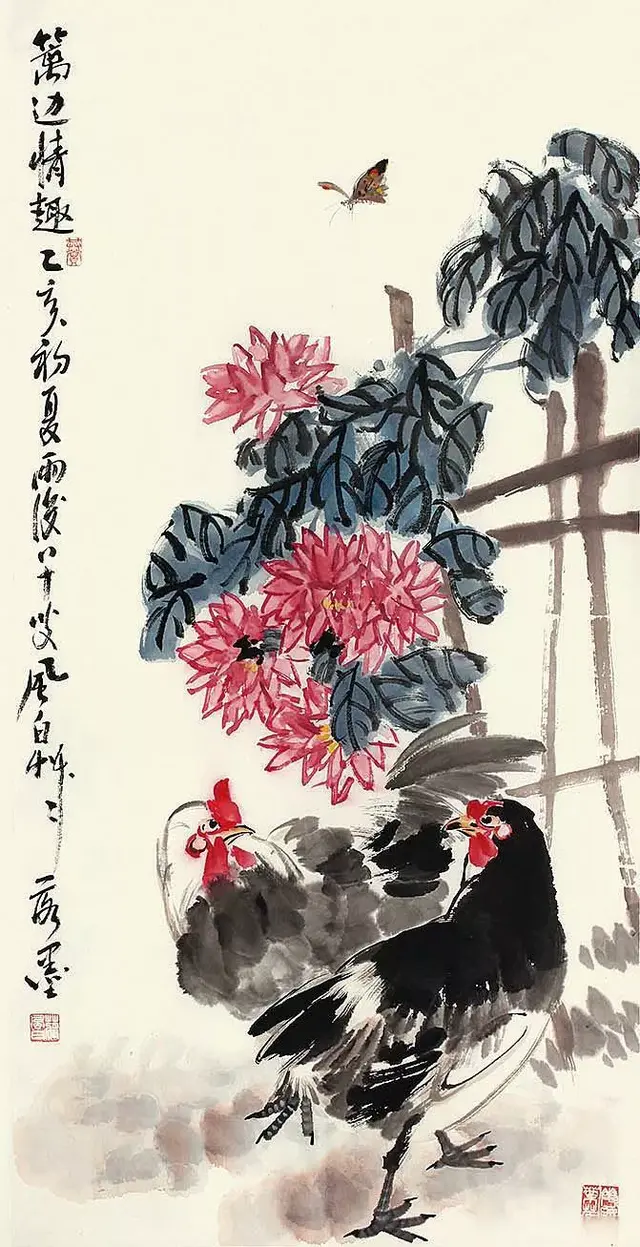 篱边情趣 乙亥初夏雨後八十叟风白 墨